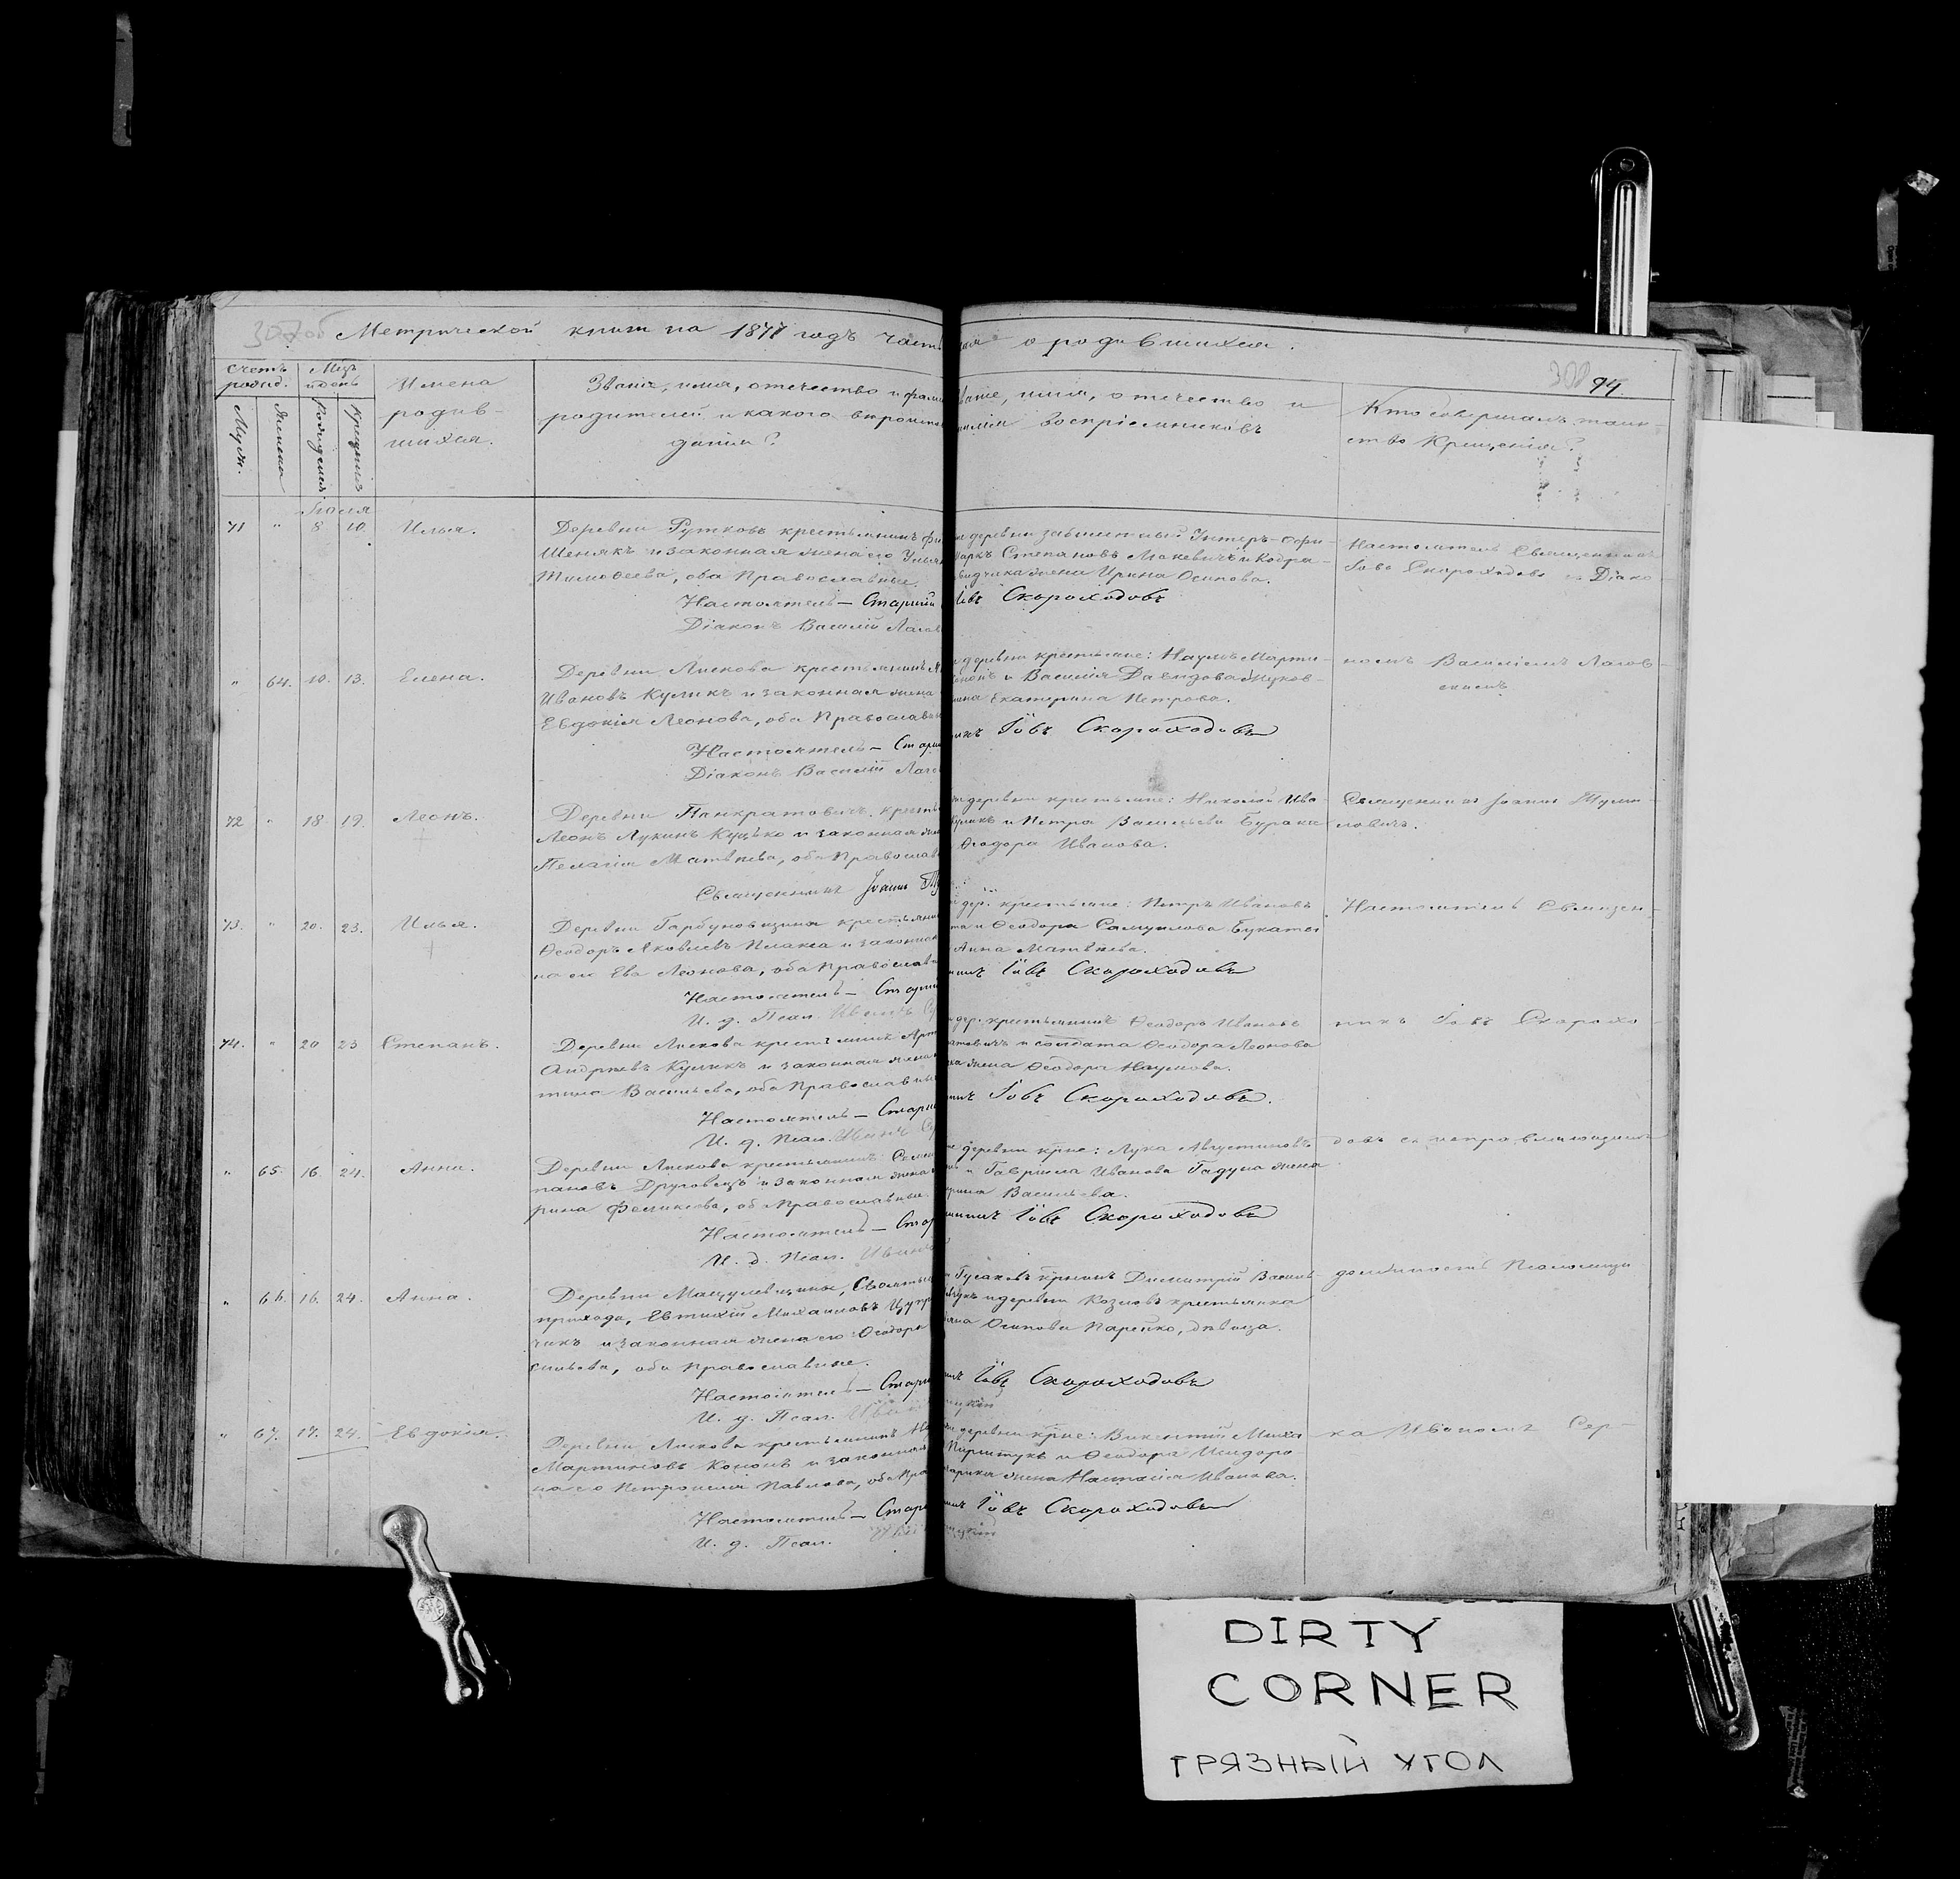 307об Метрической книги на 1877 годъ часть
о родившихся.
308 94.
Счетъ родив.
Мужс.
Женска
Мцъ и день
Рожденія
Крещенія
Имена
родив-
шихся.
Званіе, имя, отечество и фами
родителей и какого вѣроиспо
данія?
ваніе, имя, отечество и
милія воспріемниковъ
Кто совершалъ таин-
ство Крещенія?
Іюля
71 " 8 10. Илья.
Деревни Рутковъ крестьянинъ
Шенякъ и законная жена его
Тимовеева, оба Православные.
Настоятель — Старшій
Діаконъ Василій Лагов
деревни Унтеръ-Офи-
Степановъ и
жена Ирина Осипова.
Іовъ Скороходовъ
Настоятель Священникъ
Іовъ Скороходовъ съ Діако-
" 64. 10. 13. Елена.
Деревни Лискова крестьянинъ
Ивановъ Куликъ и законная жена
Евдокія Леонова, оба Православн
Настоятель — Старш
Діаконъ Василій Лагов
деревни крестьяне: Наумъ Марти-
и Василія Давидова
Екатерина Петрова.
Іовъ Скороходовъ
номъ Василіемъ Лагов-
скимъ
72 " 18. 19. Леонъ.
Деревни Панкратовичъ крестья
Леонъ Лукинъ Куцько и законная же
Пелагія Матвѣева, оба Православ
Священникъ Іоаннъ
деревни крестьяне: Николай Ива-
Куликъ и Петра Васильева Бурака
Ѳеодора Иванова.
Священникъ Іоаннъ
ловичъ.
73. " 20. 23. Илья.
Деревни Гарбуновщина крестьянин
Ѳеодоръ Яковлевъ Плакса и законная
на его Ева Леонова, оба Православн
Настоятель — Старш
И. д. Псал. Иванъ
дер. крестьяне: Петръ Ивановъ
и Ѳеодора Самуилова Букаты
Анна Матвѣева.
Іовъ Скороходовъ
Настоятель Священ-
74. " 20 23 Степанъ.
Деревни Лискова крестьянинъ
Андреевъ Куликъ и законная жена
Васильева, оба Православные
Настоятель — Старш
И. д. Псал. Иванъ
дер. крестьянинъ Ѳеодоръ Ивановъ
и солдата Ѳеодора Леонова
жена Ѳеодора Наумова.
Іовъ Скороходовъ.
никъ Іовъ Скорохо-
" 65. 16. 24. Анна.
Деревни Лискова крестьянинъ
пановъ Друговецъ и законная жена
рина Феликсова, об Православные.
Настоятель — Стар
И. д. Псал. Иванъ
деревни крне: Лука Августиновъ
и Гавріила Иванова Гадуна жена
Васильева.
Іовъ Скороходовъ
довъ съ исправляющимъ
" 66. 16. 24. Анна.
Деревни Мацулевщина,
прихода, Евтихій Михаиловъ
чикъ и законная жена его Ѳеодора
сильева, оба Православные.
Настоятель — Старш
И. д. Псал. Иван
Гусаковъ крнинъ Димитрій Василь-
и деревни Козловъ крестьянка
Осипова Парейко, дѣвица.
Іовъ Скороходовъ
должность Псаломщи-
" 67. 17. 24. Евдокія.
Деревни Лискова крестьянинъ
Мартиновъ Кононъ и законная
на его Петронелія Павлова, оба Пра
Настоятель — Старш
И. д. Псал.
деревни крне: Викентій Миха
и Ѳеодора
жена Настасія Иванова.
Іовъ Скороходовъ
ка Иваномъ Сер-
DIRTY
CORNER
ГРЯЗНЫЙ УГОЛ